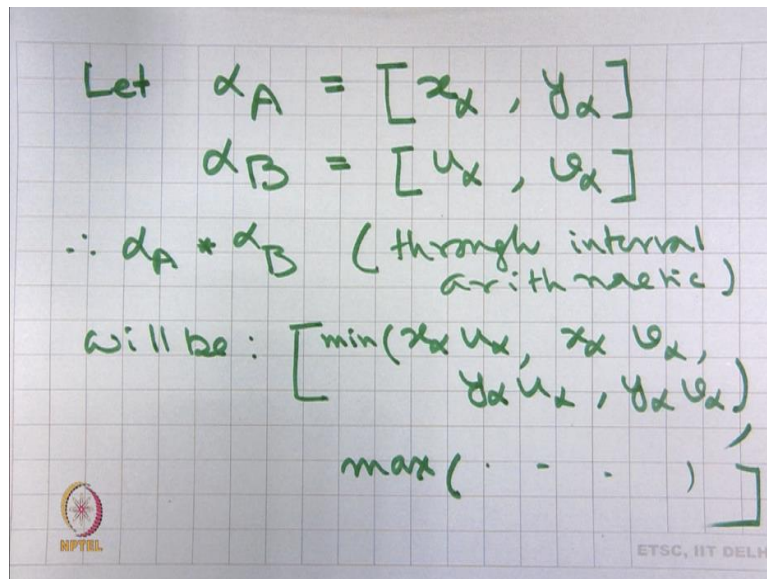 Let αA = [xα, yα]
αB = [uα, vα]
∴ αA * αB (through interval
arithmetic)
will be: [min(xα uα, xα vα,
yα uα, yα vα),
max( · - · )]
NPTEL
ETSC, IIT DELH